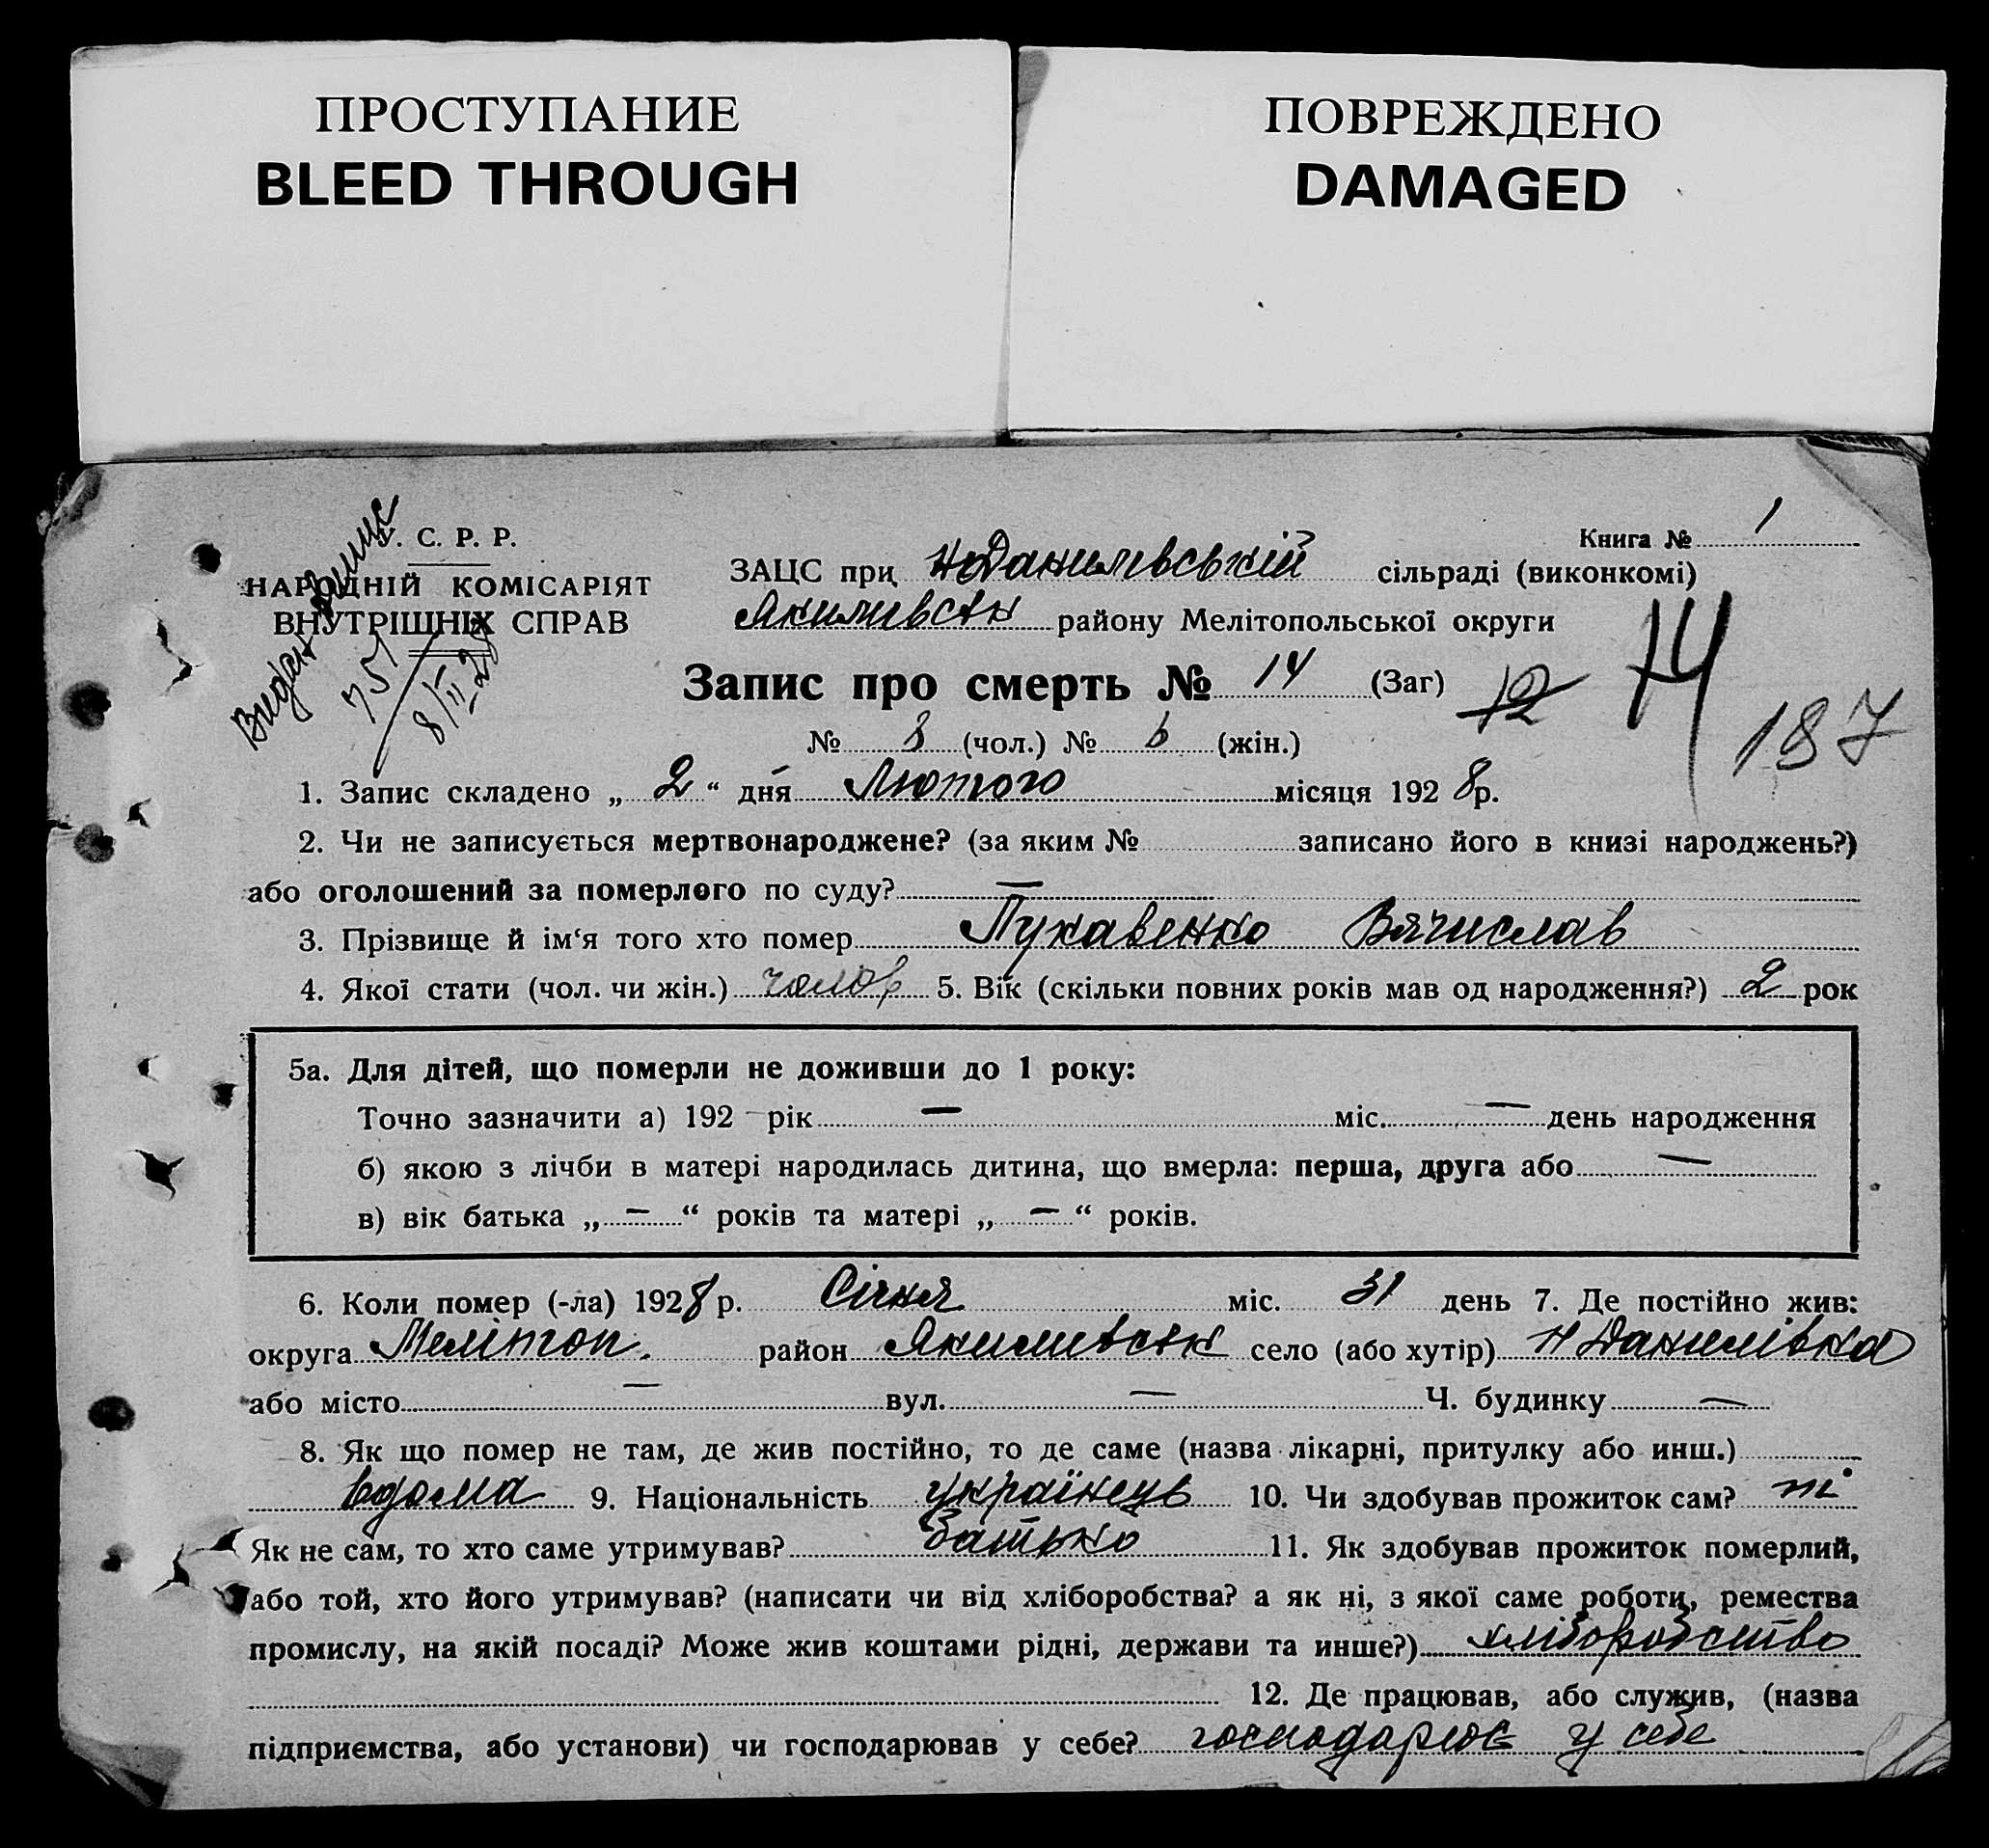 ПРОСТУПАНИЕ
BLEED THROUGH
ПОВРЕЖДЕНО
DAMAGED
С. Р. Р.
НАРОДНІЙ КОМІСАРІЯТ
ВНУТРІШНІХ СПРАВ
Видан
751
8/II 28
Книга № 1
ЗАЦС при Н Данилівській сільраді (виконкомі)
Якимівськ району Мелітопольської округи
Запис про смерть № 14 (Заг) 12 14
187
№ 8 (чол.) № 6 (жін.)
1. Запис складено „ 2 “ дня Лютого місяця 192 8 р.
2. Чи не записується мертвонароджене? (за яким № записано його в книзі народжень?)
або оголошений за померлого по суду? —
3. Прізвище й ім‘я того хто помер Пукавенко Вячислав
4. Якої стати (чол. чи жін.) чолов 5. Вік (скільки повних років мав од народження?) 2 рок
5а. Для дітей, що померли не доживши до 1 року:
Точно зазначити а) 192 — рік — міс. — день народження
б) якою з лічби в матері народилась дитина, що вмерла: перша, друга або —
в) вік батька „ — “ років та матері „ — “ років.
6. Коли помер (-ла) 1928 р. Січня міс. 31 день 7. Де постійно жив:
округа Мелітоп. район Якимівськ село (або хутір) Н Данилівка
або місто — вул. — Ч. будинку —
8. Як що помер не там, де жив постійно, то де саме (назва лікарні, притулку або инш.)
вдома 9. Національність українець 10. Чи здобував прожиток сам? ні
Як не сам, то хто саме утримував? батько 11. Як здобував прожиток померлий,
або той, хто його утримував? (написати чи від хліборобства? а як ні, з якої саме роботи, ремества
промислу, на якій посаді? Може жив коштами рідні, держави та инше?) хліборобство
12. Де працював, або служив, (назва
підприємства, або установи) чи господарював у себе? господарює у себе